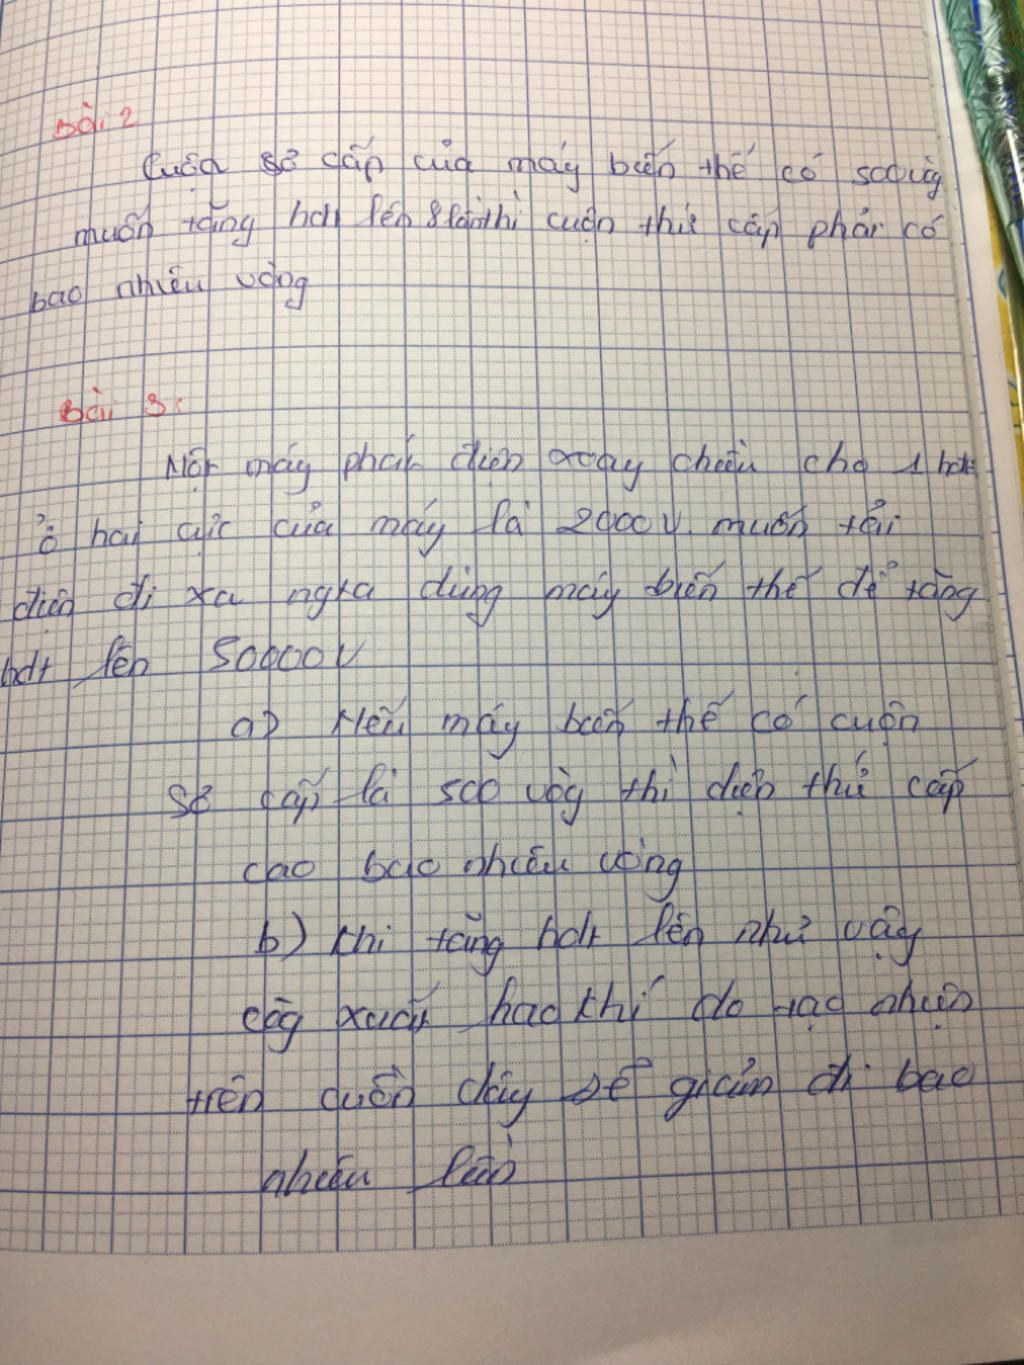 Bài 2
Cuộn sơ cấp của máy biến thế có 500 vòg
muốn tăng hđt lên 8 lần thì cuộn thứ cấp phải có
bao nhiêu vòng
Bài 3:
Một máy phát điện xoay chiều cho 1 hđt
ở hai cực của máy là 2000V. muốn tải
điện đi xa ngta dùng máy biến thế để tăng
hđt lên 50000V
a) Nếu máy biến thế có cuộn
sơ cấp là 500 vòg thì điện thứ cấp
cao bao nhiêu vòng
b) khi tăng hđt lên như vậy
côg xuất hao khí do tạo nhiện
trên cuồn dây sẽ giảm đi bao
nhiêu lần